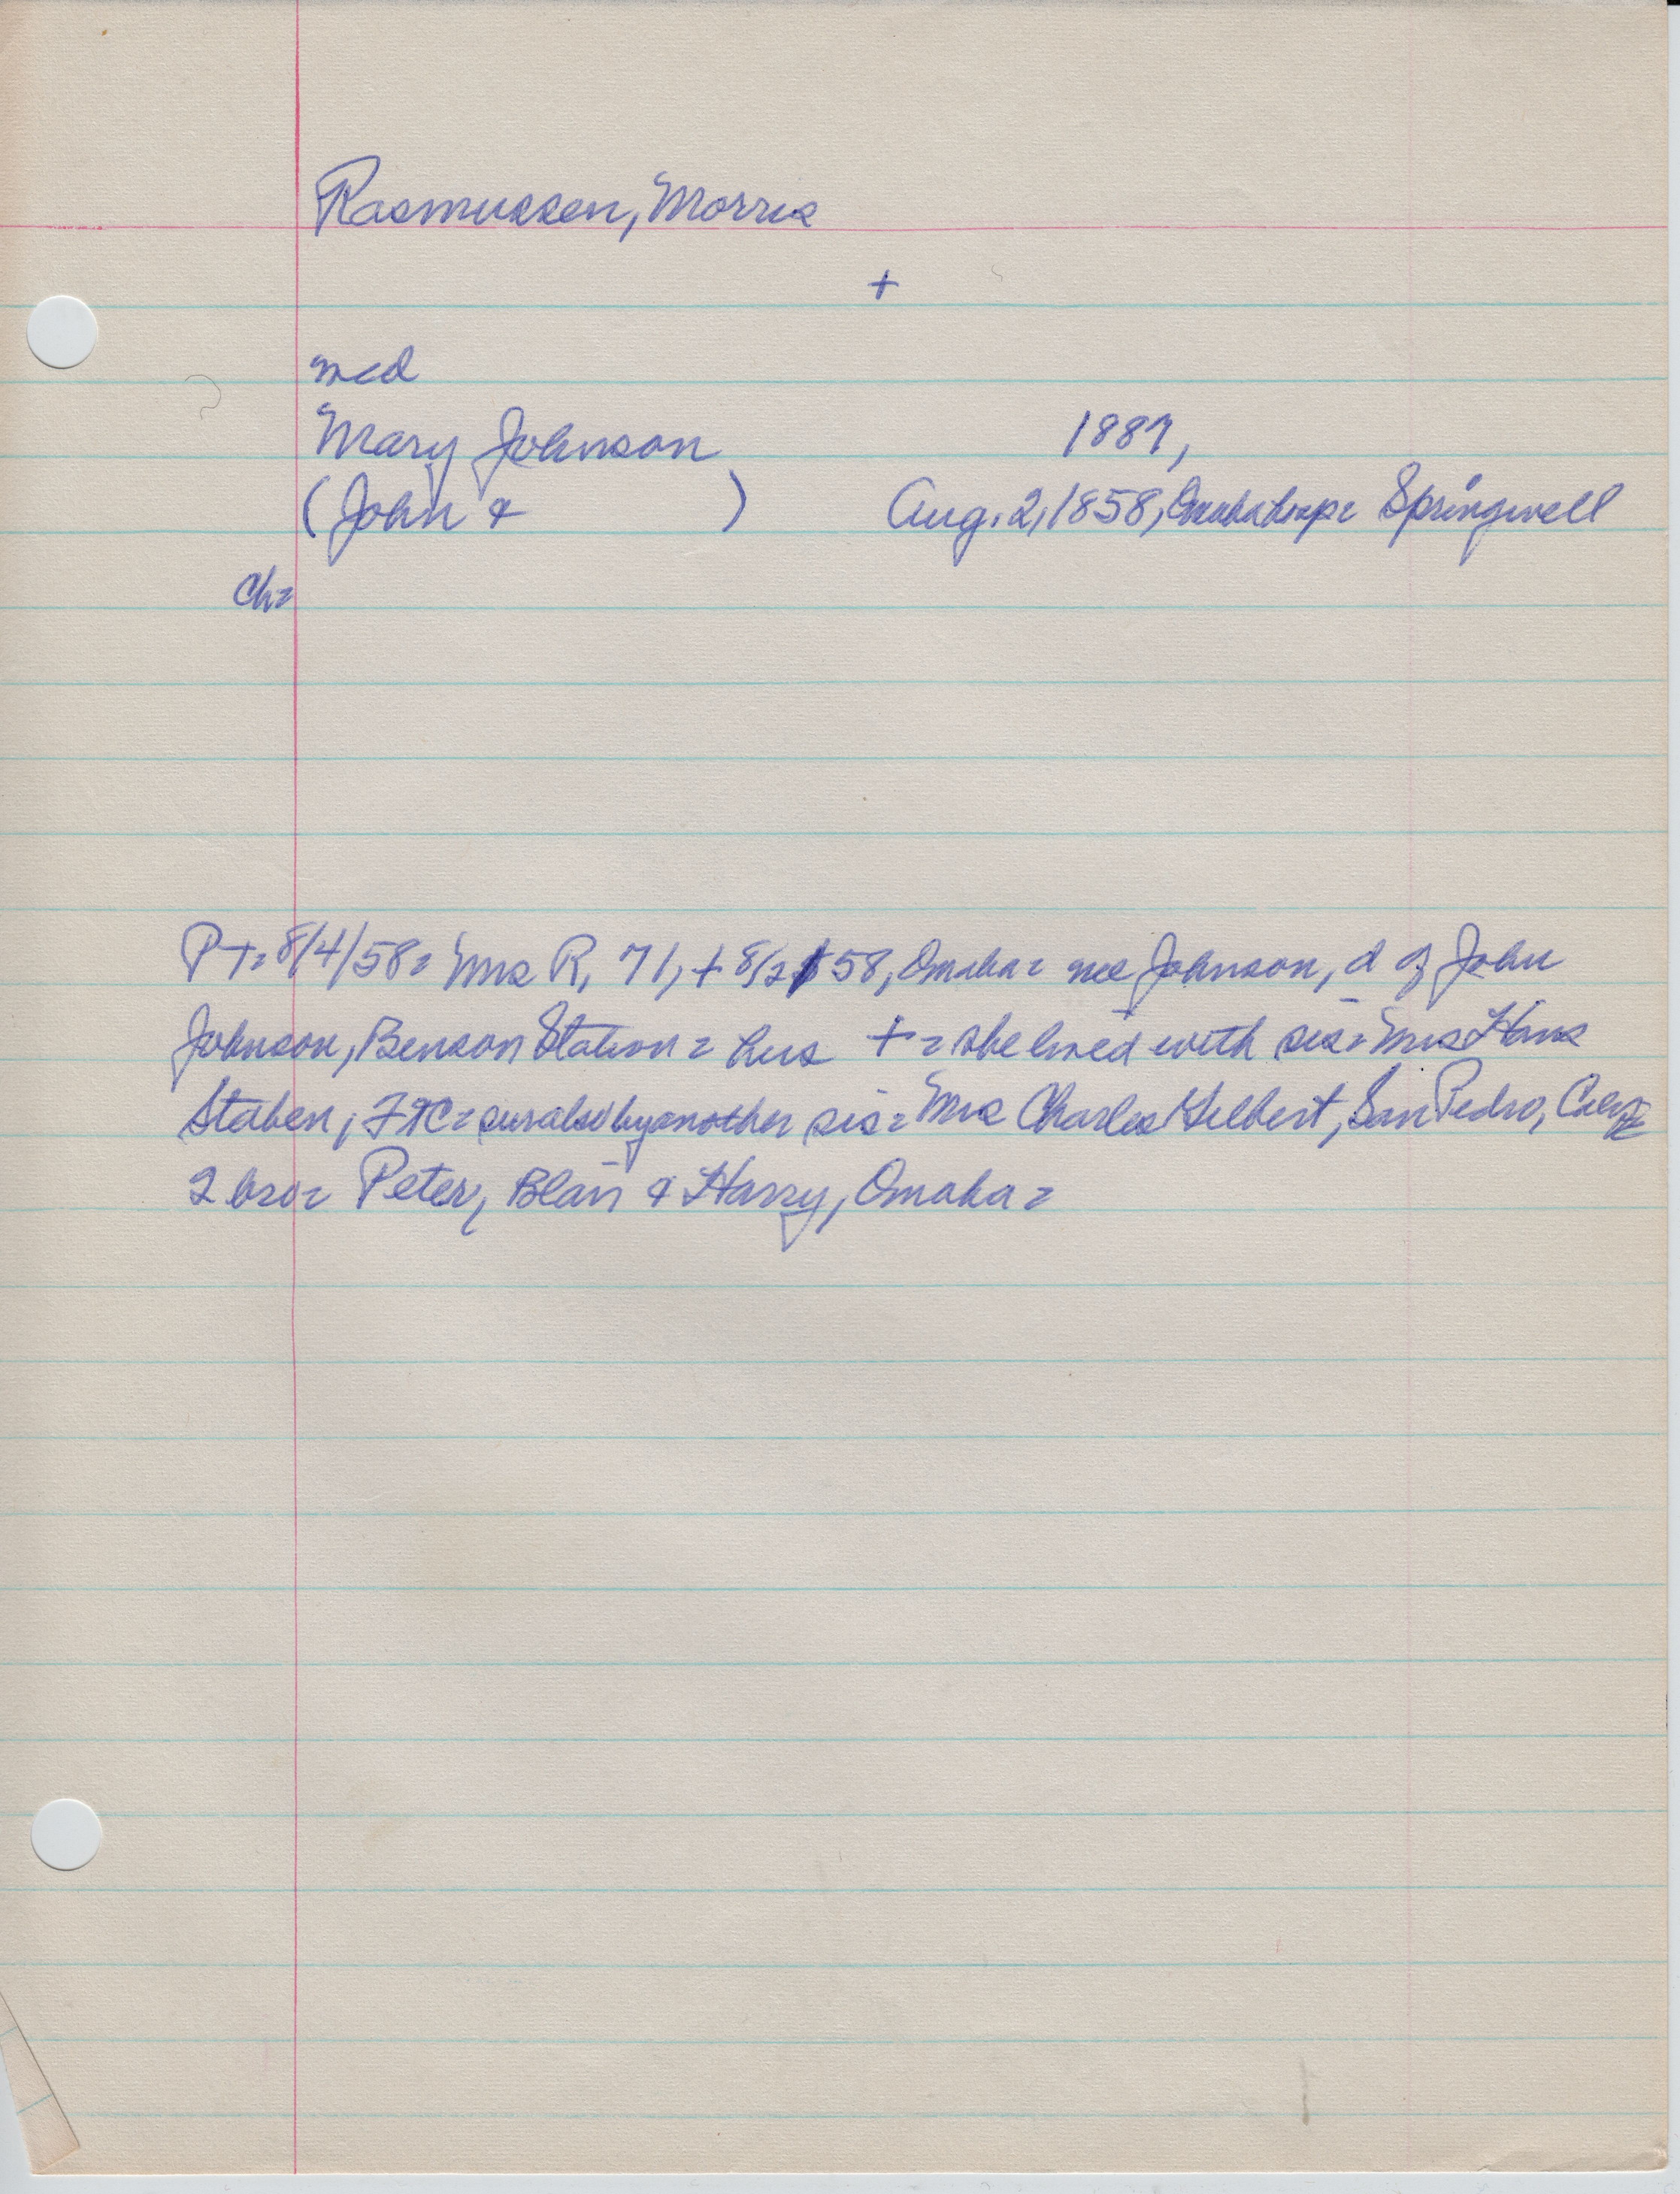 Rasmussen, Morris
+
mcd
Mary Johnson 1887,
(John & ) Aug. 2, 1858, Springwell
Ch=
PT= 8/4/58= Mrs R, 71, + 8/2/58, Omaha= nee Johnson, d of John
Johnson, Benson Station= hus + = she lived with sis= Mrs Hans
Staben, = sur also by another sis= Mrs Charles Helbert, San Pedro, Calif=
2 bro= Peter, Blair & Harry, Omaha=